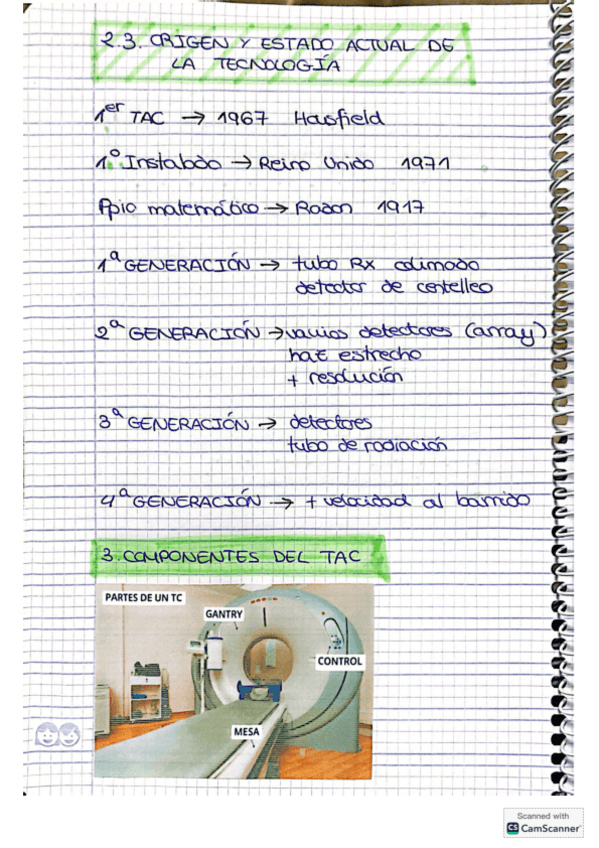 2.3. ORIGEN Y ESTADO ACTUAL DE
LA TECNOLOGÍA
1er TAC → 1967 Housfield
1º Instalado → Reino Unido 1971
Ppio matemático → Radon 1917
1ª GENERACIÓN → tubo Rx colimado
detector de centelleo
2ª GENERACIÓN → varios detectores (array)
haz estrecho
+ resolución
3ª GENERACIÓN → detectores
tubo de radiación
4ª GENERACIÓN → + velocidad al barrido
3. COMPONENTES DEL TAC
PARTES DE UN TC
GANTRY
CONTROL
MESA
Scanned with
CS CamScanner